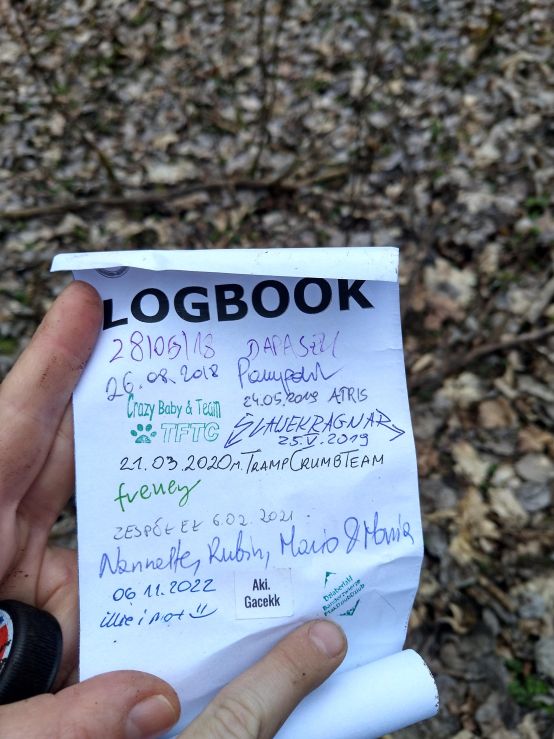 LOGBOOK
28/06/18 DAPASZU
26.08.2018
24.05.2019 ATRIS
Crazy Baby & Team
TFTC
ŚLAWEKRAGNAR
25.V.2019
21.03.2020r. TRAMPCRUMBTEAM
freney
ZESPÓŁ EŁ 6.02.2021
Nannette, Rubin, Mario & Mania
06 11.2022
Aki.
Gacekk